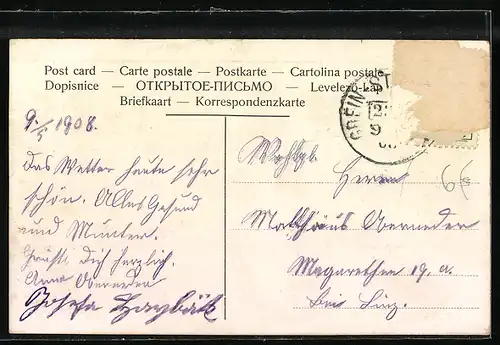 Post card — Carte postale — Postkarte — Cartolina postale
Dopisnice — ОТКРЫТОЕ-ПИСЬМО — Levelező-Lap
Briefkaart — Korrespondenzkarte
9./5 1908.
Das Wetter heute sehr
schön. Alles Gesund
und Munter.
Grüßt Dich herzlich.
Anna Oberneder
Josefa
GREIN
Wohlgb.
Herrn
Matthäus Oberneder
Magarethen 19. a.
bei Linz.